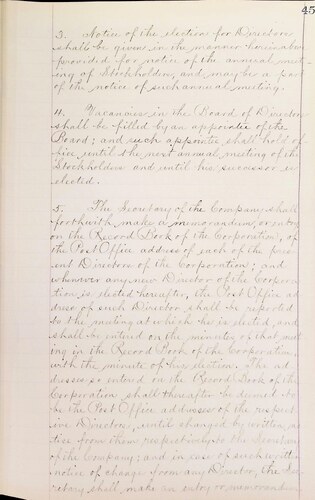 45
3. Notice of the election for Directors
shall be given in the manner hereinabove
provided for notice of the annual meet-
ing of Stockholders, and may be a part
of the notice of such annual meeting.
4. Vacancies in the Board of Directors
shall be filled by an appointee of the
Board; and such appointee shall hold of-
fice until the next annual meeting of the
Stockholders and until his successor is
elected.
5. The Secretary of the Company shall
forthwith make a memorandum or entry
on the Record Book of the Corporation, of
the Post Office address of each of the pres-
ent Directors of the Corporation; and
whenever any new Director of the Corpora-
tion is elected hereafter, the Post Office ad-
dress of such Director shall be reported
to the meeting at which he is elected, and
shall be entered on the minutes of that meet-
ing in the Record Book of the Corporation,
with the minute of his election. The ad-
dresses so entered on the Record Book of the
Corporation shall thereafter be deemed to
be the Post Office addresses of the respect-
ive Directors, until changed by written no-
tice from them respectively to the Secretary
of the Company; and in case of such written
notice of change from any Director, the Sec-
retary shall make an entry or memorandum